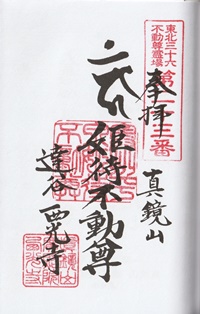 東北三十六
不動尊霊場
第二十三番
奉拝
真鏡山
姫待不動尊
達谷 西光寺